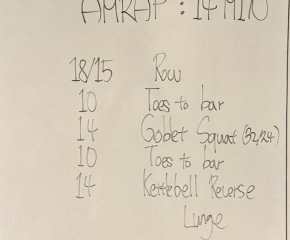 AMRAP : 14 MIN
18/15 Row
10 Toes to bar
14 Goblet Squat (32/24)
10 Toes to bar
14 Kettlebell Reverse
Lunge